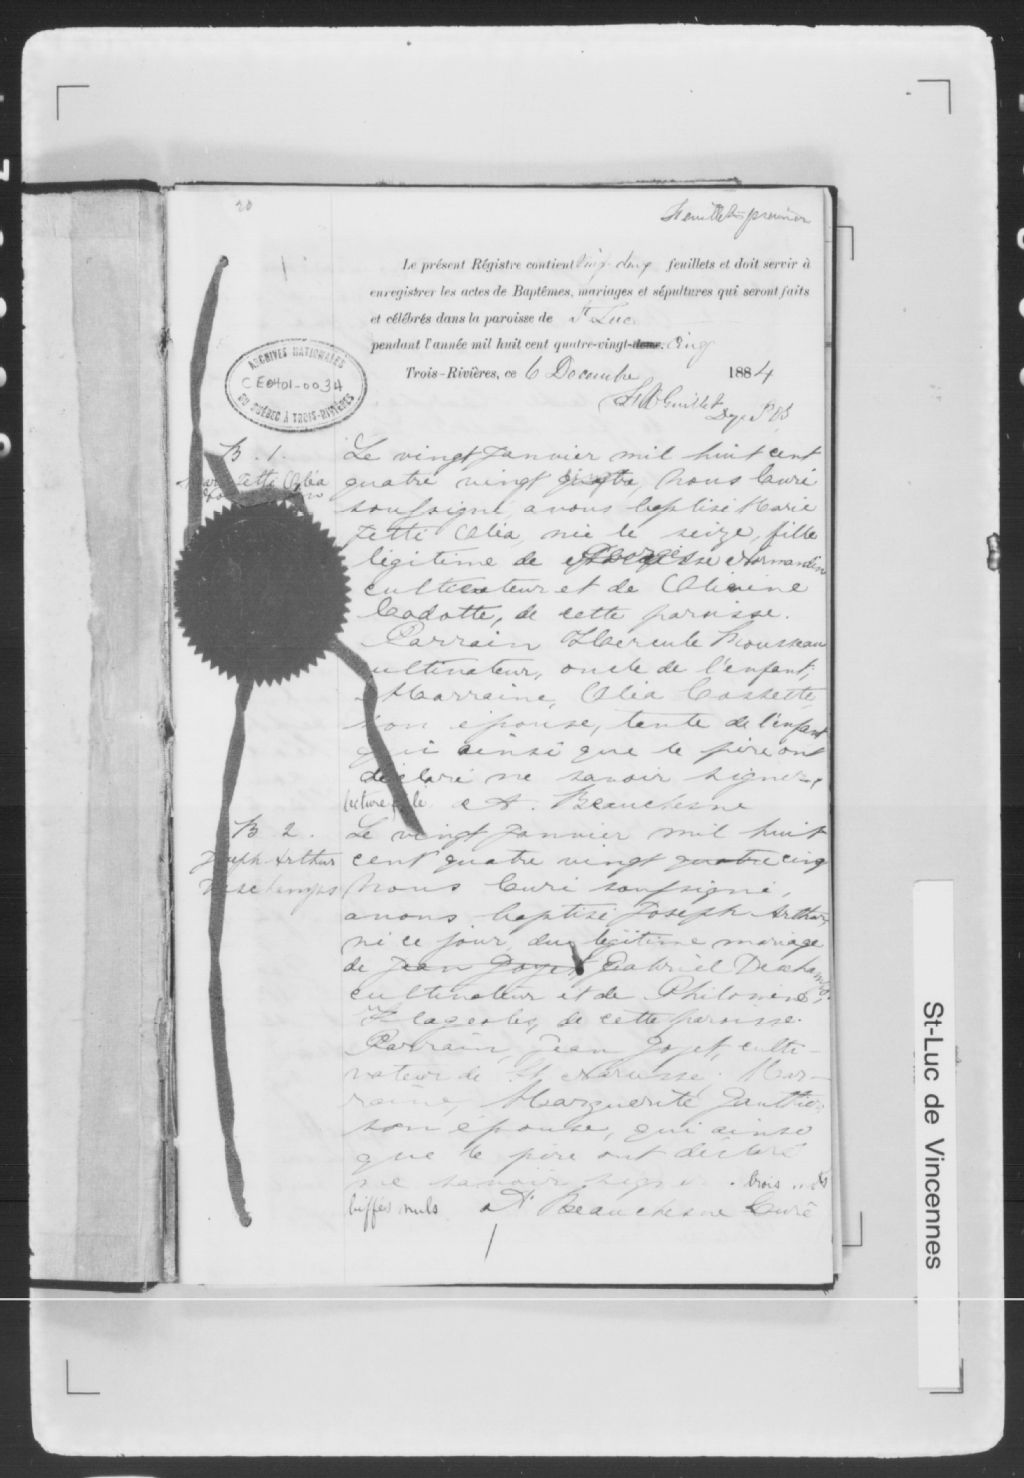 20
Feuillet premier
Le présent Régistre contient vingt-cinq feuillets et doit servir à
enregistrer les actes de Baptêmes, mariages et sépultures qui seront faits
et célébrés dans la paroisse de St Luc
pendant l'année mil huit cent quatre-vingt-deux. Cinq
Trois-Rivières, ce 6 Decembre 1884
Guillet
Dep.
ARCHIVES NATIONALES
CE0401-0034
DU QUÉBEC À TROIS-RIVIÈRES
B. 1.
Zetti Cléa
Le vingt Janvier mil huit cent
quatre vingt Nous Curé
soussigné avons baptisé Marie
Zetti Cléa, née le seize, fille
légitime de Normandin
cultivateur et de
Cadotte, de cette paroisse.
Parrain Hercule Rousseau
cultivateur, oncle de l'enfant;
Marraine, Cléa Cossette
son épouse, tante de l'enfant
qui ainsi que le père ont
déclaré ne savoir signer,
lecture A. Beauchesne
B 2.
Joseph Arthur
Deschamps
Le vingt Janvier mil huit
cent quatre vingt quatre cinq
Nous Curé soussigné,
avons baptisé Joseph Arthur,
né ce jour, du légitime mariage
de Jean Goyet Gabriel Deschamps,
cultivateur et de Philomène
Lagerles, de cette paroisse.
Parrain, Jean Goyet, culti-
vateur de St Narcisse. Mar-
raine, Marguerite Gauthier
son épouse, qui ainsi
que le père ont déclaré
ne savoir signer. trois mots
biffés nuls A. Beauchesne Curé
St-Luc de Vincennes